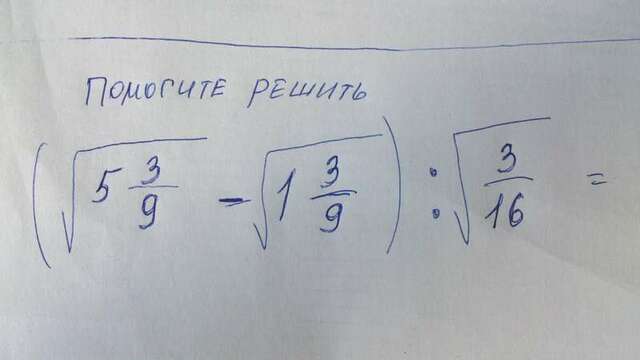 Помогите решить
(√5 3/9 - √1 3/9) : √3/16 =